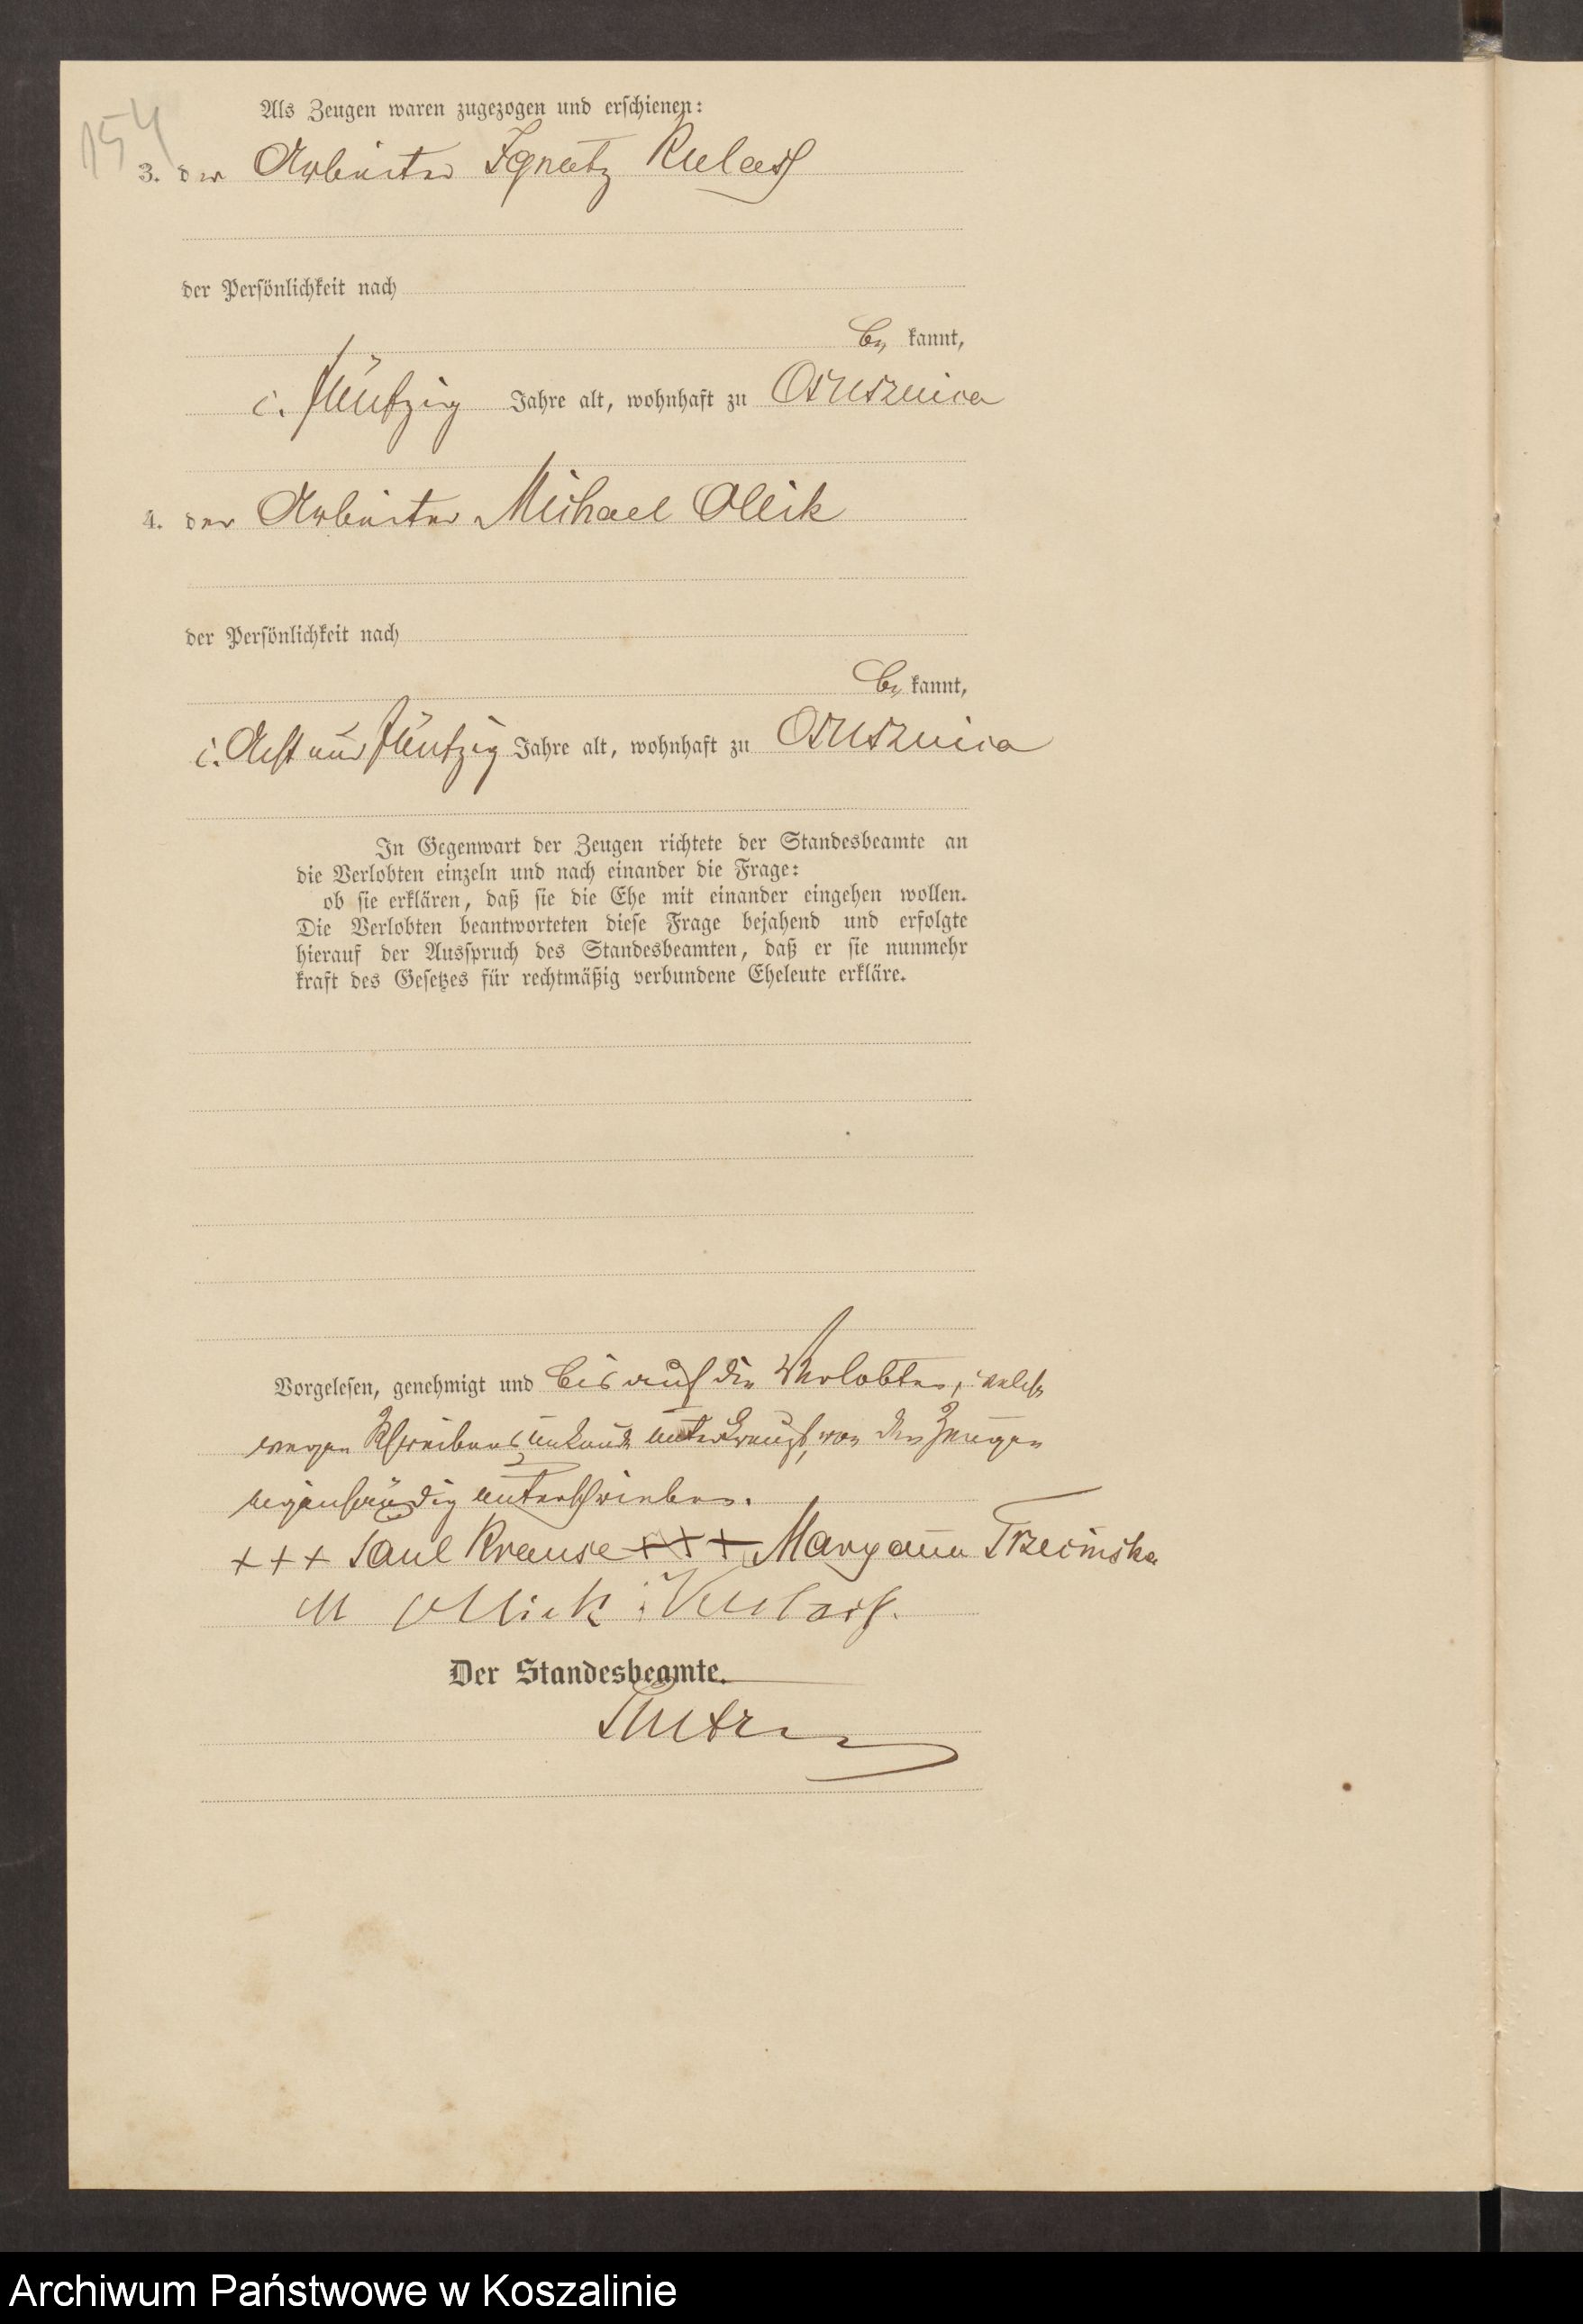 154
Als Zeugen waren zugezogen und erschienen:
3. der Arbeiter Ignatz Kulas
der Persönlichkeit nach
be kannt,
c. fünfzig Jahre alt, wohnhaft zu Osusznica
4. der Arbeiter Michael Olik
der Persönlichkeit nach
be kannt,
c. Acht und fünfzig Jahre alt, wohnhaft zu Osusznica
In Gegenwart der Zeugen richtete der Standesbeamte an
die Verlobten einzeln und nach einander die Frage:
ob sie erklären, daß sie die Ehe mit einander eingehen wollen.
Die Verlobten beantworteten diese Frage bejahend und erfolgte
hierauf der Ausspruch des Standesbeamten, daß er sie nunmehr
kraft des Gesetzes für rechtmäßig verbundene Eheleute erkläre.
Vorgelesen, genehmigt und bis auf die Verlobten, welche
wegen Schreibensunkunde unterkreuzt, von den Zeugen
eigenhändig unterschrieben.
+++ Paul Krause +++ Maryanna Trzecinska
M Ollick Kulas.
Der Standesbeamte.
Archiwum Państwowe w Koszalinie